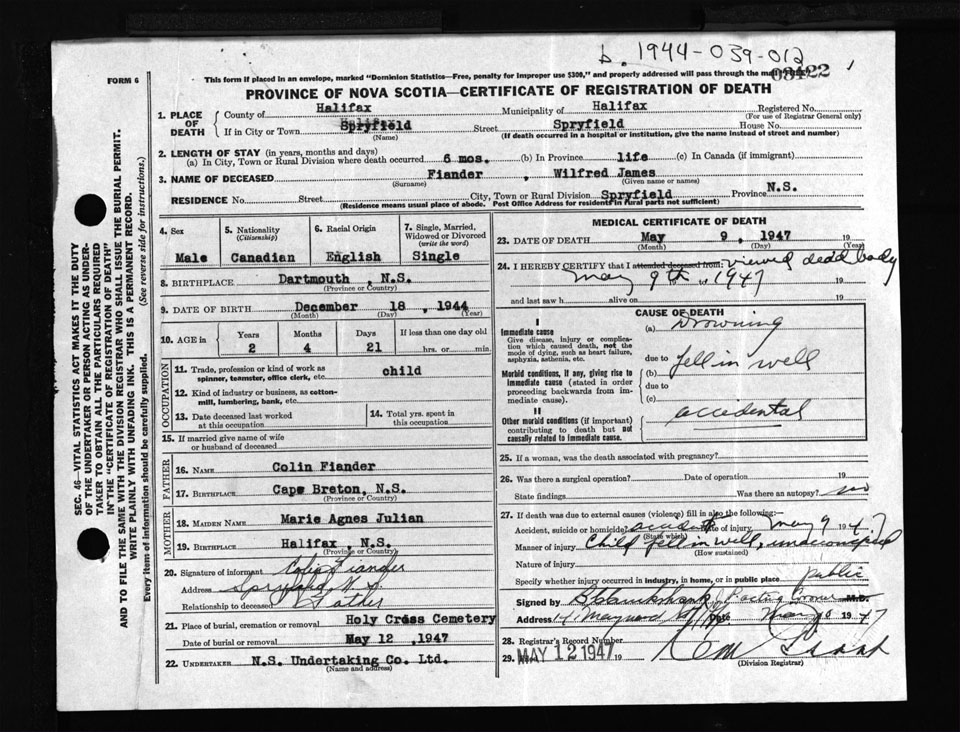 b. 1944-039-012
FORM 6
This form if placed in an envelope, marked "Dominion Statistics—Free, penalty for improper use $300," and properly addressed will pass through the mail free.
03422
PROVINCE OF NOVA SCOTIA—CERTIFICATE OF REGISTRATION OF DEATH
SEC. 46—VITAL STATISTICS ACT MAKES IT THE DUTY
OF THE UNDERTAKER OR PERSON ACTING AS UNDER-
TAKER TO OBTAIN ALL THE PARTICULARS REQUIRED
IN THE "CERTIFICATE OF REGISTRATION OF DEATH"
AND TO FILE THE SAME WITH THE DIVISION REGISTRAR WHO SHALL ISSUE THE BURIAL PERMIT.
WRITE PLAINLY WITH UNFADING INK. THIS IS A PERMANENT RECORD.
Every item of Information should be carefully supplied. (See reverse side for instructions.)
1. PLACE OF DEATH County of Halifax Municipality of Halifax Registered No.
(For use of Registrar General only)
If in City or Town Spryfield Street Spryfield House No.
(Name) (If death occurred in a hospital or institution, give the name instead of street and number)
2. LENGTH OF STAY (in years, months and days)
(a) In City, Town or Rural Division where death occurred 6 mos. (b) In Province life (c) In Canada (if immigrant)
3. NAME OF DECEASED Fiander , Wilfred James
(Surname) (Given name or names)
RESIDENCE No. Street City, Town or Rural Division Spryfield Province N.S.
(Residence means usual place of abode. Post Office Address for residents in rural parts not sufficient)
4. Sex 5. Nationality (Citizenship) 6. Racial Origin 7. Single, Married, Widowed or Divorced (write the word)
Male Canadian English Single
8. BIRTHPLACE Dartmouth , N.S.
(Province or Country)
9. DATE OF BIRTH December 18 , 1944
(Month) (Day) (Year)
10. AGE in Years Months Days If less than one day old
2 4 21 hrs. or min.
OCCUPATION
11. Trade, profession or kind of work as spinner, teamster, office clerk, etc. child
12. Kind of industry or business, as cotton-mill, lumbering, bank, etc.
13. Date deceased last worked at this occupation
14. Total yrs. spent in this occupation
15. If married give name of wife or husband of deceased
FATHER
16. NAME Colin Fiander
17. BIRTHPLACE Cape Breton, N.S.
(Province or Country)
MOTHER
18. MAIDEN NAME Marie Agnes Julian
19. BIRTHPLACE Halifax , N.S.
(Province or Country)
20. Signature of informant Colin Fiander
Address Spryfield N S
Relationship to deceased Father
21. Place of burial, cremation or removal Holy Cross Cemetery
Date of burial or removal May 12 , 1947
22. UNDERTAKER N.S. Undertaking Co. Ltd.
(Name and address)
MEDICAL CERTIFICATE OF DEATH
23. DATE OF DEATH May 9 , 1947 19
(Month) (Day) (Year)
24. I HEREBY CERTIFY that I attended deceased from: viewed dead body
May 9th to 1947 19
and last saw h alive on 19
CAUSE OF DEATH
I
Immediate cause (a) Drowning
Give disease, injury or complication which caused death, not the mode of dying, such as heart failure, asphyxia, asthenia, etc.
due to fell in well
Morbid conditions, if any, giving rise to immediate cause (stated in order proceeding backwards from immediate cause).
(b)
due to
(c)
II
Other morbid conditions (if important) contributing to death but not causally related to immediate cause.
accidental
25. If a woman, was the death associated with pregnancy?
26. Was there a surgical operation? Date of operation 19
State findings Was there an autopsy? no
27. If death was due to external causes (violence) fill in also the following:
Accident, suicide or homicide? accident Date of injury May 9 1947
(State which)
Manner of injury Child fell in well,
(How sustained)
Nature of injury
Specify whether injury occurred in industry, in home, or in public place public
Signed by Acting Coroner M.D.
Address 14 Maynard St Date May 10 1947
28. Registrar's Record Number
29. MAY 12 1947 19
(Division Registrar)